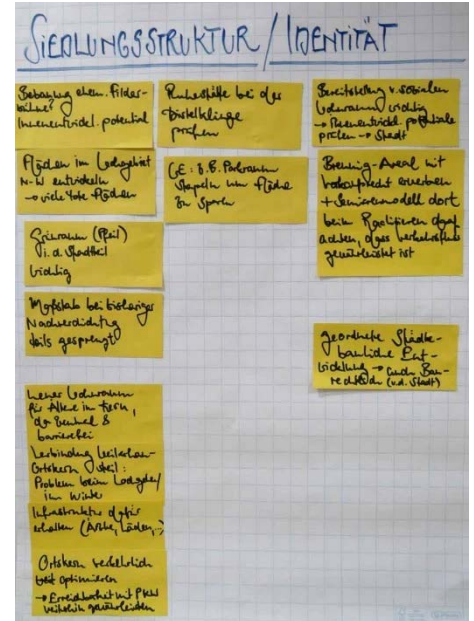 SIEDLUNGSSTRUKTUR / IDENTITÄT
Bebauung ehem. Filder-
bühne?
Innenentwickl. potential
Flächen im Wohngebiet
N-W entwickeln
→ viele tote Flächen
Grünraum (Pfeil)
i. d. Stadtteil
wichtig
Maßstab bei bisheriger
Nachverdichtung
teils gesprengt
neuer Wohnraum
für Ältere im Kern,
da zentral &
barrierefrei
Verbindung
Ortskern steil:
Problem beim
im Winter
Infrastruktur dafür
erhalten (Ärzte, Läden, ..)
Ortskern verkehrlich
optimieren
→ Erreichbarkeit mit PKW
weiterhin gewährleisten
Ruhestätte bei der
Distelklinge
prüfen
GE: z.B. Parkraum
stapeln um Fläche
zu sparen
Bereitstellung v. sozialem
Wohnraum wichtig
→ Innenentwickl. potentiale
prüfen → Stadt
Areal mit
Vorkaufsrecht erwerben
+ Seniorenmodell dort
beim Realisieren drauf
achten, dass
gewährleistet ist
geordnete Städte-
bauliche Ent-
wicklung → auch Bau-
rechtlich (v.d. Stadt)